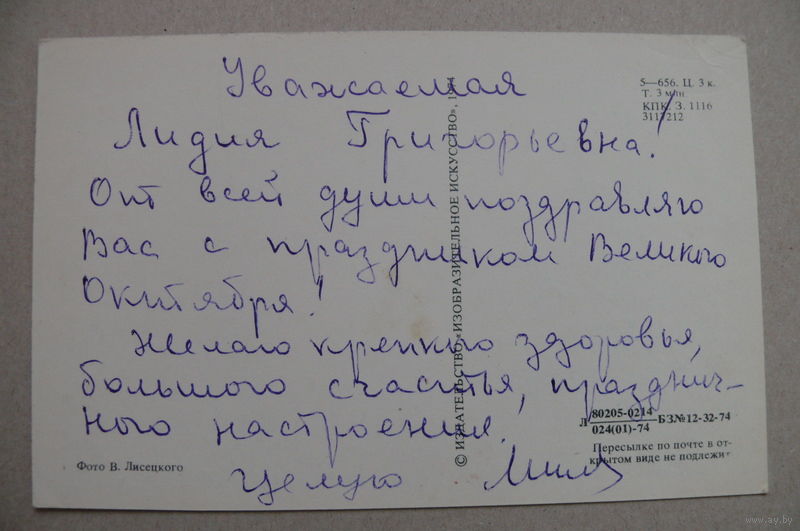 Уважаемая
Лидия Григорьевна!
От всей души поздравляю
Вас с праздником Великого
Октября!
Желаю крепкого здоровья,
большого счастья, празднич-
ного настроения.
Целую
5—656. Ц. 3 к.
Т. 3 млн
КПК. З. 1116
3113212
© ИЗДАТЕЛЬСТВО «ИЗОБРАЗИТЕЛЬНОЕ ИСКУССТВО», 1974
80205-0214
Л БЗ№12-32-74
024(01)-74
Пересылке по почте в от-
крытом виде не подлежит
Фото В. Лисецкого
www.ay.by